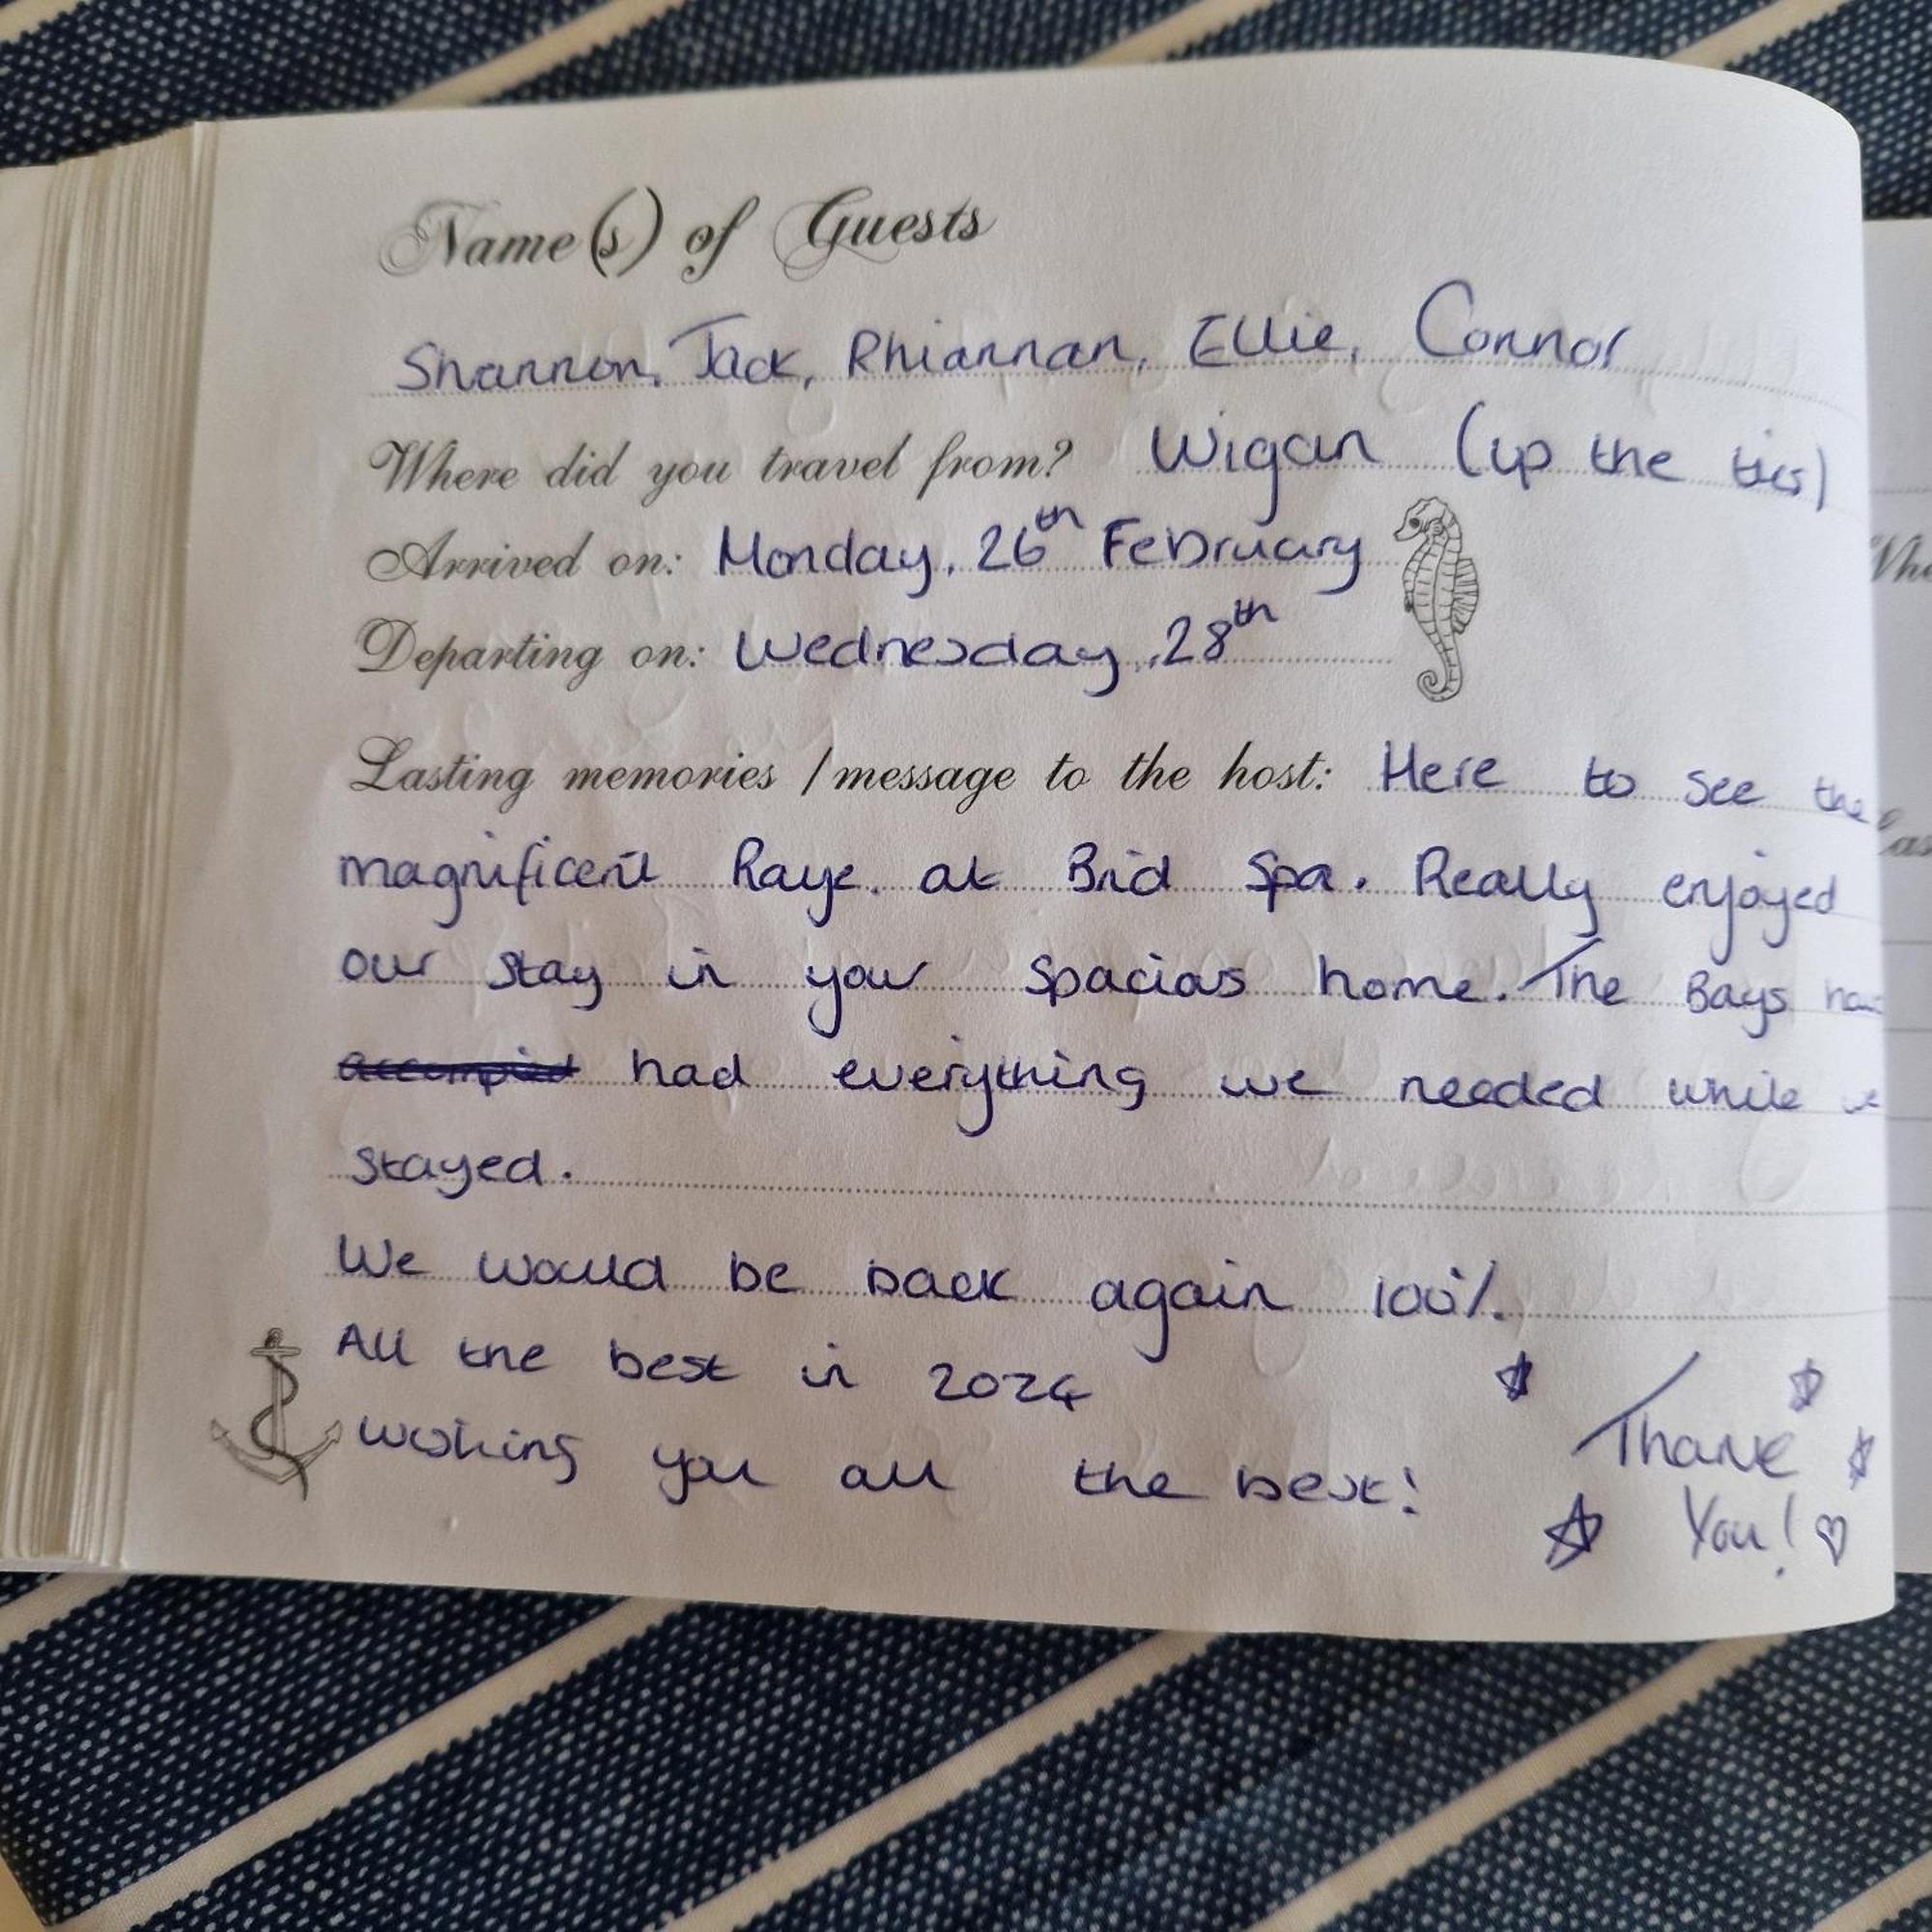 Name(s) of Guests
Shannon, Jack, Rhiannan, Ellie, Connor
Where did you travel from? Wigan (up the tics)
Arrived on: Monday, 26th February
Departing on: Wednesday, 28th
Lasting memories / message to the host: Here to see the
magnificent Raye. at Brid Spa. Really enjoyed
our stay in your spacious home. The Bays
had everything we needed while we
stayed.
We would be back again 100%.
All the best in 2024
wishing you all the best!
Thank
You! ♡